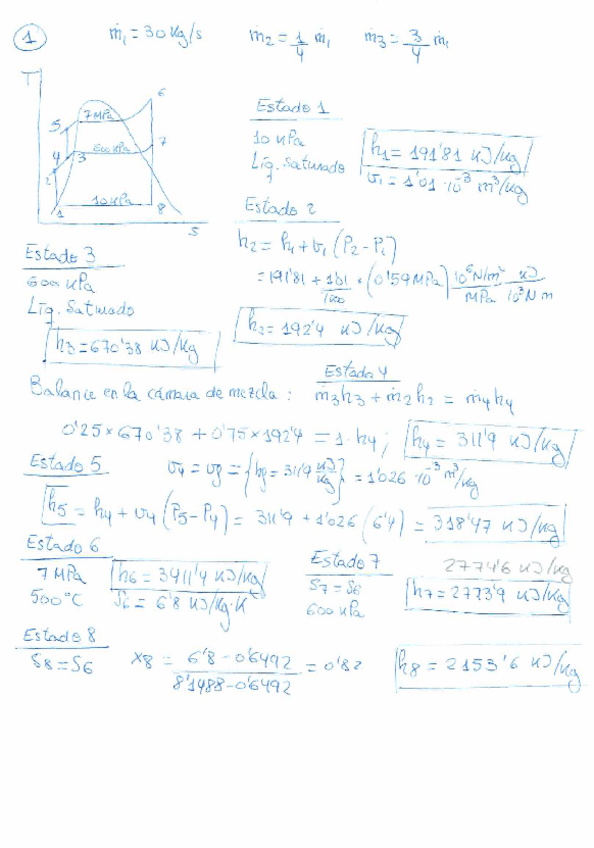 1
ṁ₁ = 30 Kg/s   ṁ₂ = 1/4 ṁ₁   ṁ₃ = 3/4 ṁ₁
T
6
7 MPa
5
4
3
600 kPa
7
2
10 kPa
1
8
s
Estado 1
10 kPa
Líq. Saturado
h₁ = 191'81 kJ/kg
v₁ = 1'01·10⁻³ m³/kg
Estado 2
h₂ = h₁ + v₁ (P₂ - P₁)
= 191'81 + 1'01/1000 * (0'59 MPa) 10⁶ N/m²/MPa kJ/10³ N m
h₂ = 192'4 kJ/kg
Estado 3
600 kPa
Líq. Saturado
h₃ = 670'38 kJ/kg
Estado 4
Balance en la cámara de mezcla : ṁ₃h₃ + ṁ₂h₂ = ṁ₄h₄
0'25 × 670'38 + 0'75 × 192'4 = 1·h₄ ; h₄ = 311'9 kJ/kg
Estado 5
= 1'026·10⁻³ m³/kg
h₅ = h₄ + v₄ (P₅ - P₄) = 311'9 + 1'026 (6'4) = 318'47 kJ/kg
Estado 6
7 MPa
500°C
h₆ = 3411'4 kJ/kg
S₆ = 6'8 kJ/kg·K
Estado 7
S₇ = S₆
600 kPa
2774'6 kJ/kg
h₇ = 2773'9 kJ/kg
Estado 8
S₈ = S₆
x₈ = 6'8 - 0'6492 / 8'1488 - 0'6492 = 0'82
h₈ = 2153'6 kJ/kg